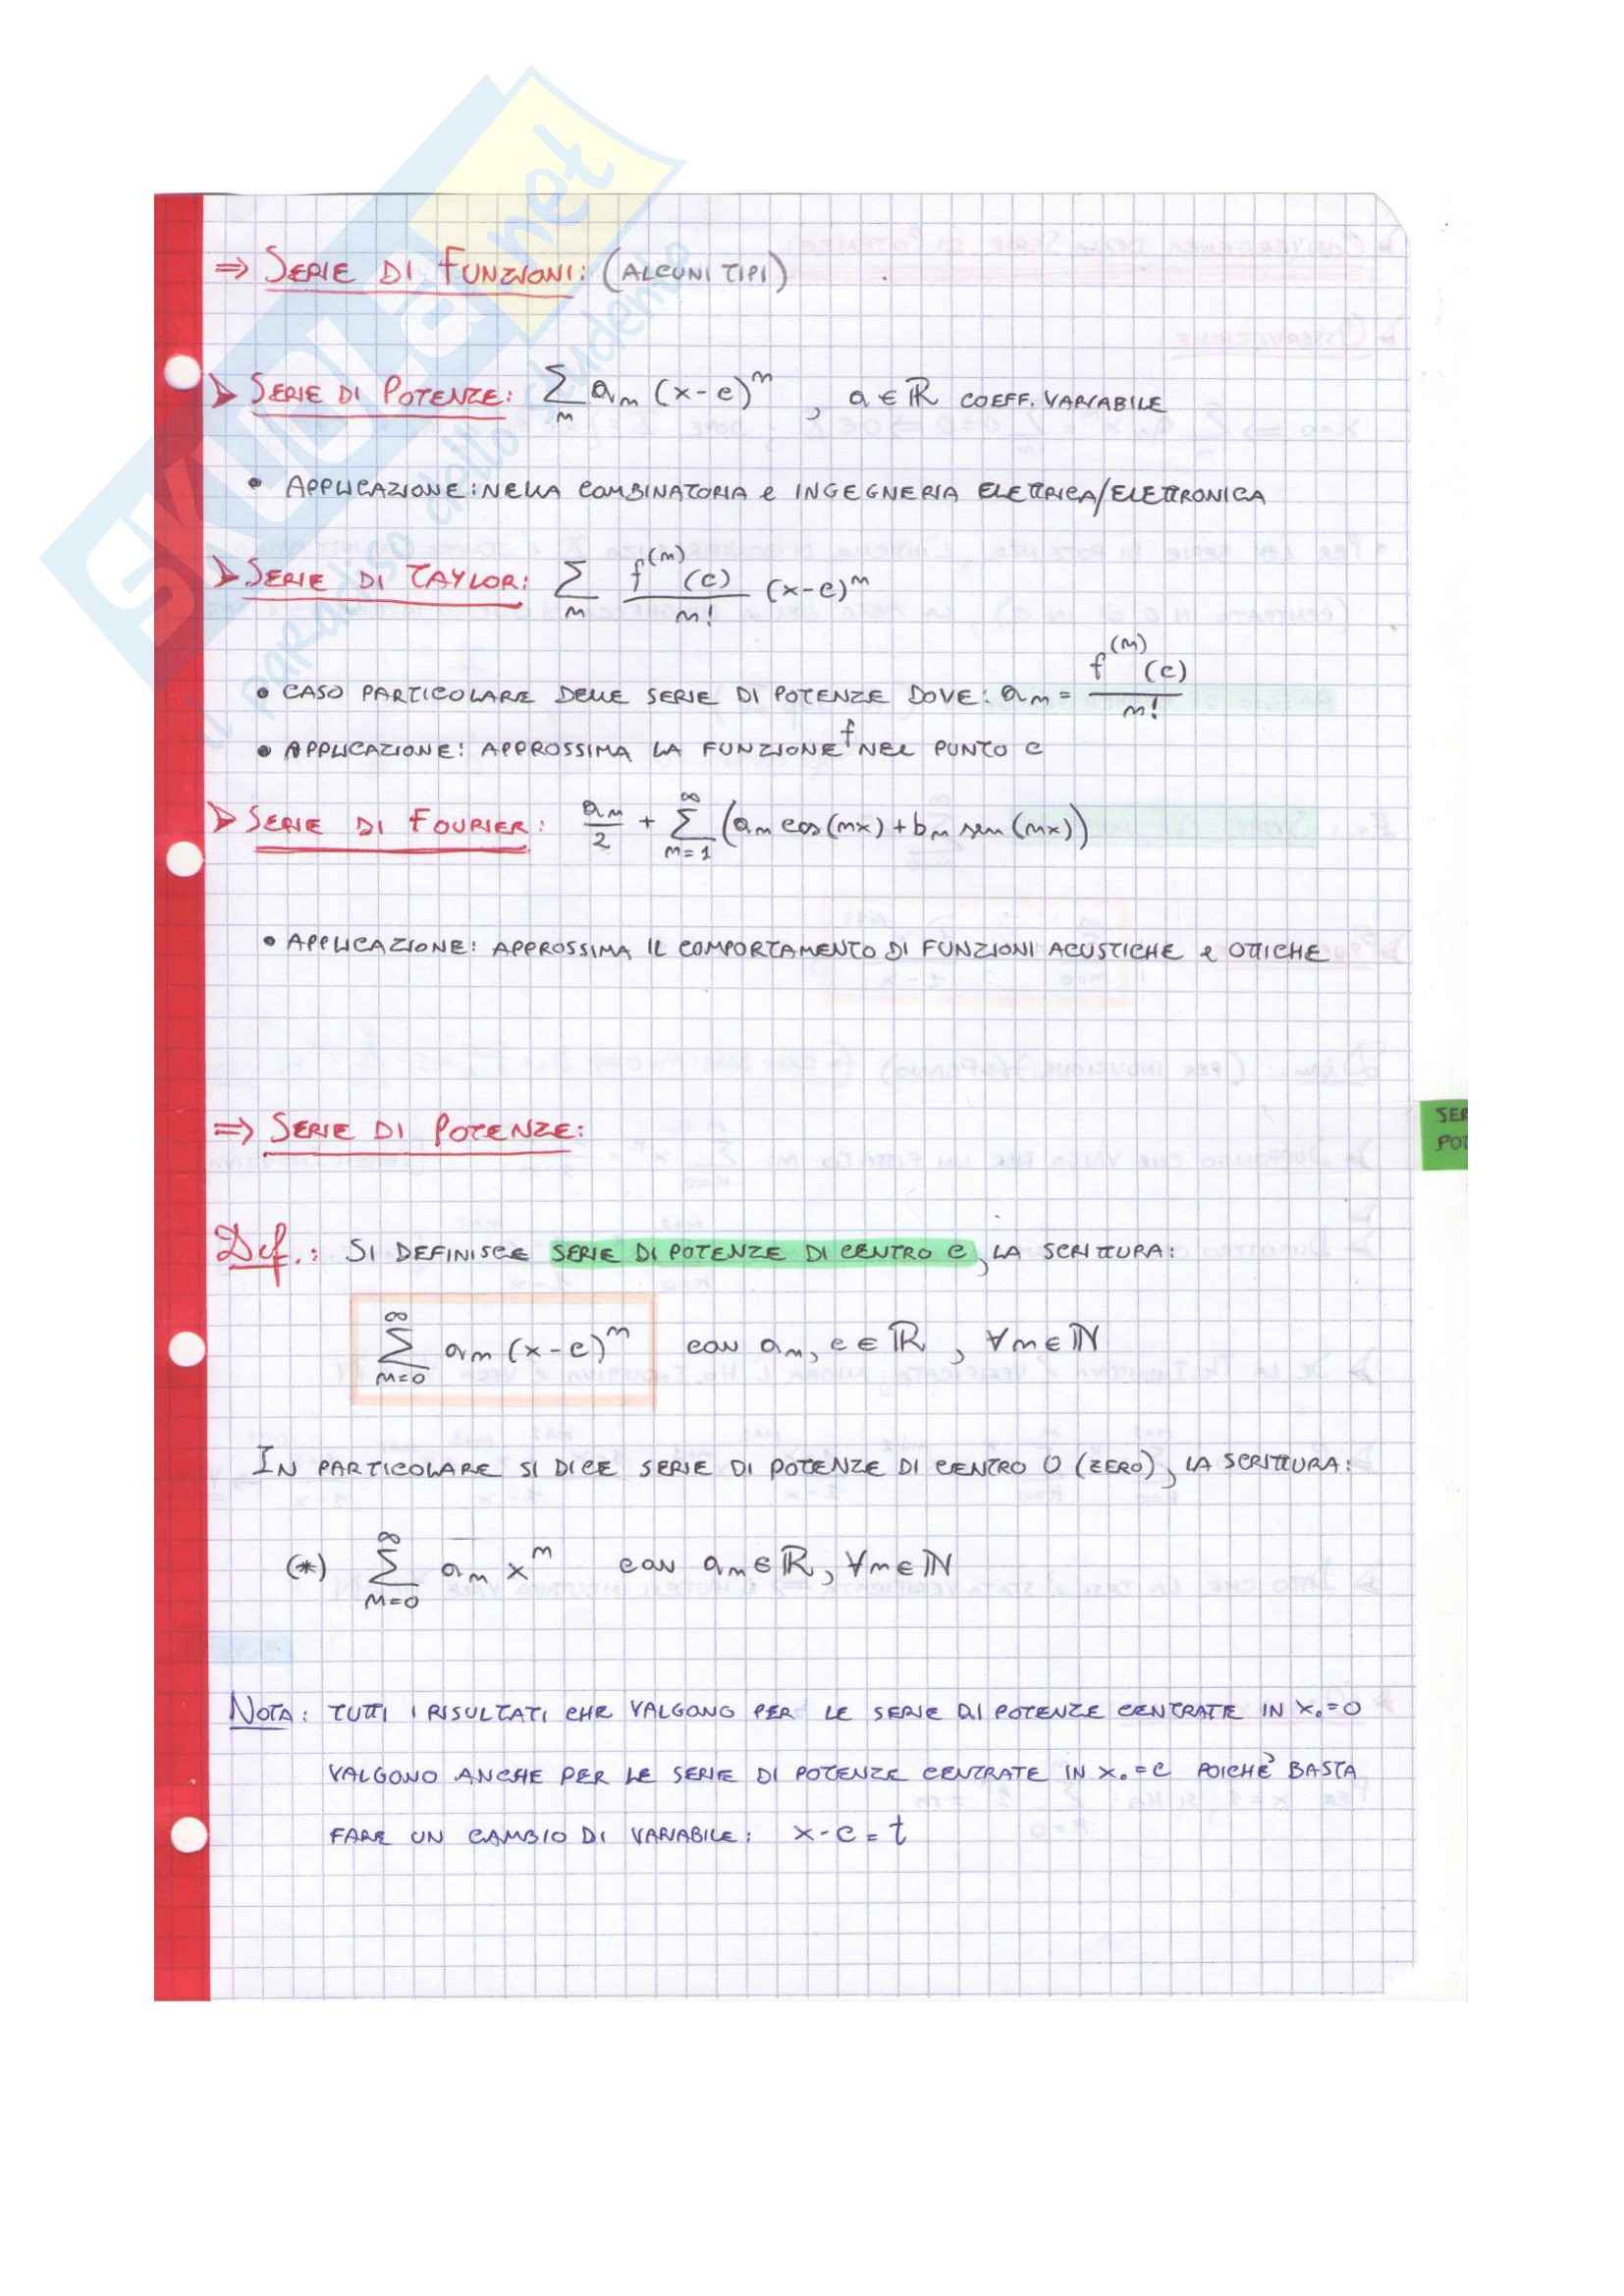 ⇒ SERIE DI FUNZIONI: (ALCUNI TIPI)
➤ SERIE DI POTENZE: ∑_n a_n (x-c)^n , a ∈ ℝ COEFF. VARIABILE
• APPLICAZIONE: NELLA COMBINATORIA e INGEGNERIA ELETTRICA/ELETTRONICA
➤ SERIE DI TAYLOR: ∑_n f^(n)(c)/n! (x-c)^n
• CASO PARTICOLARE DELLE SERIE DI POTENZE DOVE: a_n = f^(n)(c)/n!
• APPLICAZIONE: APPROSSIMA LA FUNZIONE f NEL PUNTO C
➤ SERIE DI FOURIER: a_n/2 + ∑_{n=1}^∞ (a_n cos(nx) + b_n sen(nx))
• APPLICAZIONE: APPROSSIMA IL COMPORTAMENTO DI FUNZIONI ACUSTICHE e OTTICHE
⇒ SERIE DI POTENZE:
SER
POT
Def.: SI DEFINISCE SERIE DI POTENZE DI CENTRO C, LA SCRITTURA:
∑_{n=0}^∞ a_n (x-c)^n con a_n, c ∈ ℝ , ∀n∈ℕ
IN PARTICOLARE SI DICE SERIE DI POTENZE DI CENTRO 0 (ZERO), LA SCRITTURA:
(*) ∑_{n=0}^∞ a_n x^n con a_n∈ℝ, ∀n∈ℕ
NOTA: TUTTI I RISULTATI CHE VALGONO PER LE SERIE DI POTENZE CENTRATE IN x₀=0
VALGONO ANCHE PER LE SERIE DI POTENZE CENTRATE IN x₀=C POICHÈ BASTA
FARE UN CAMBIO DI VARIABILE: x-c=t
SKUOLA.net
il paradiso dello studente